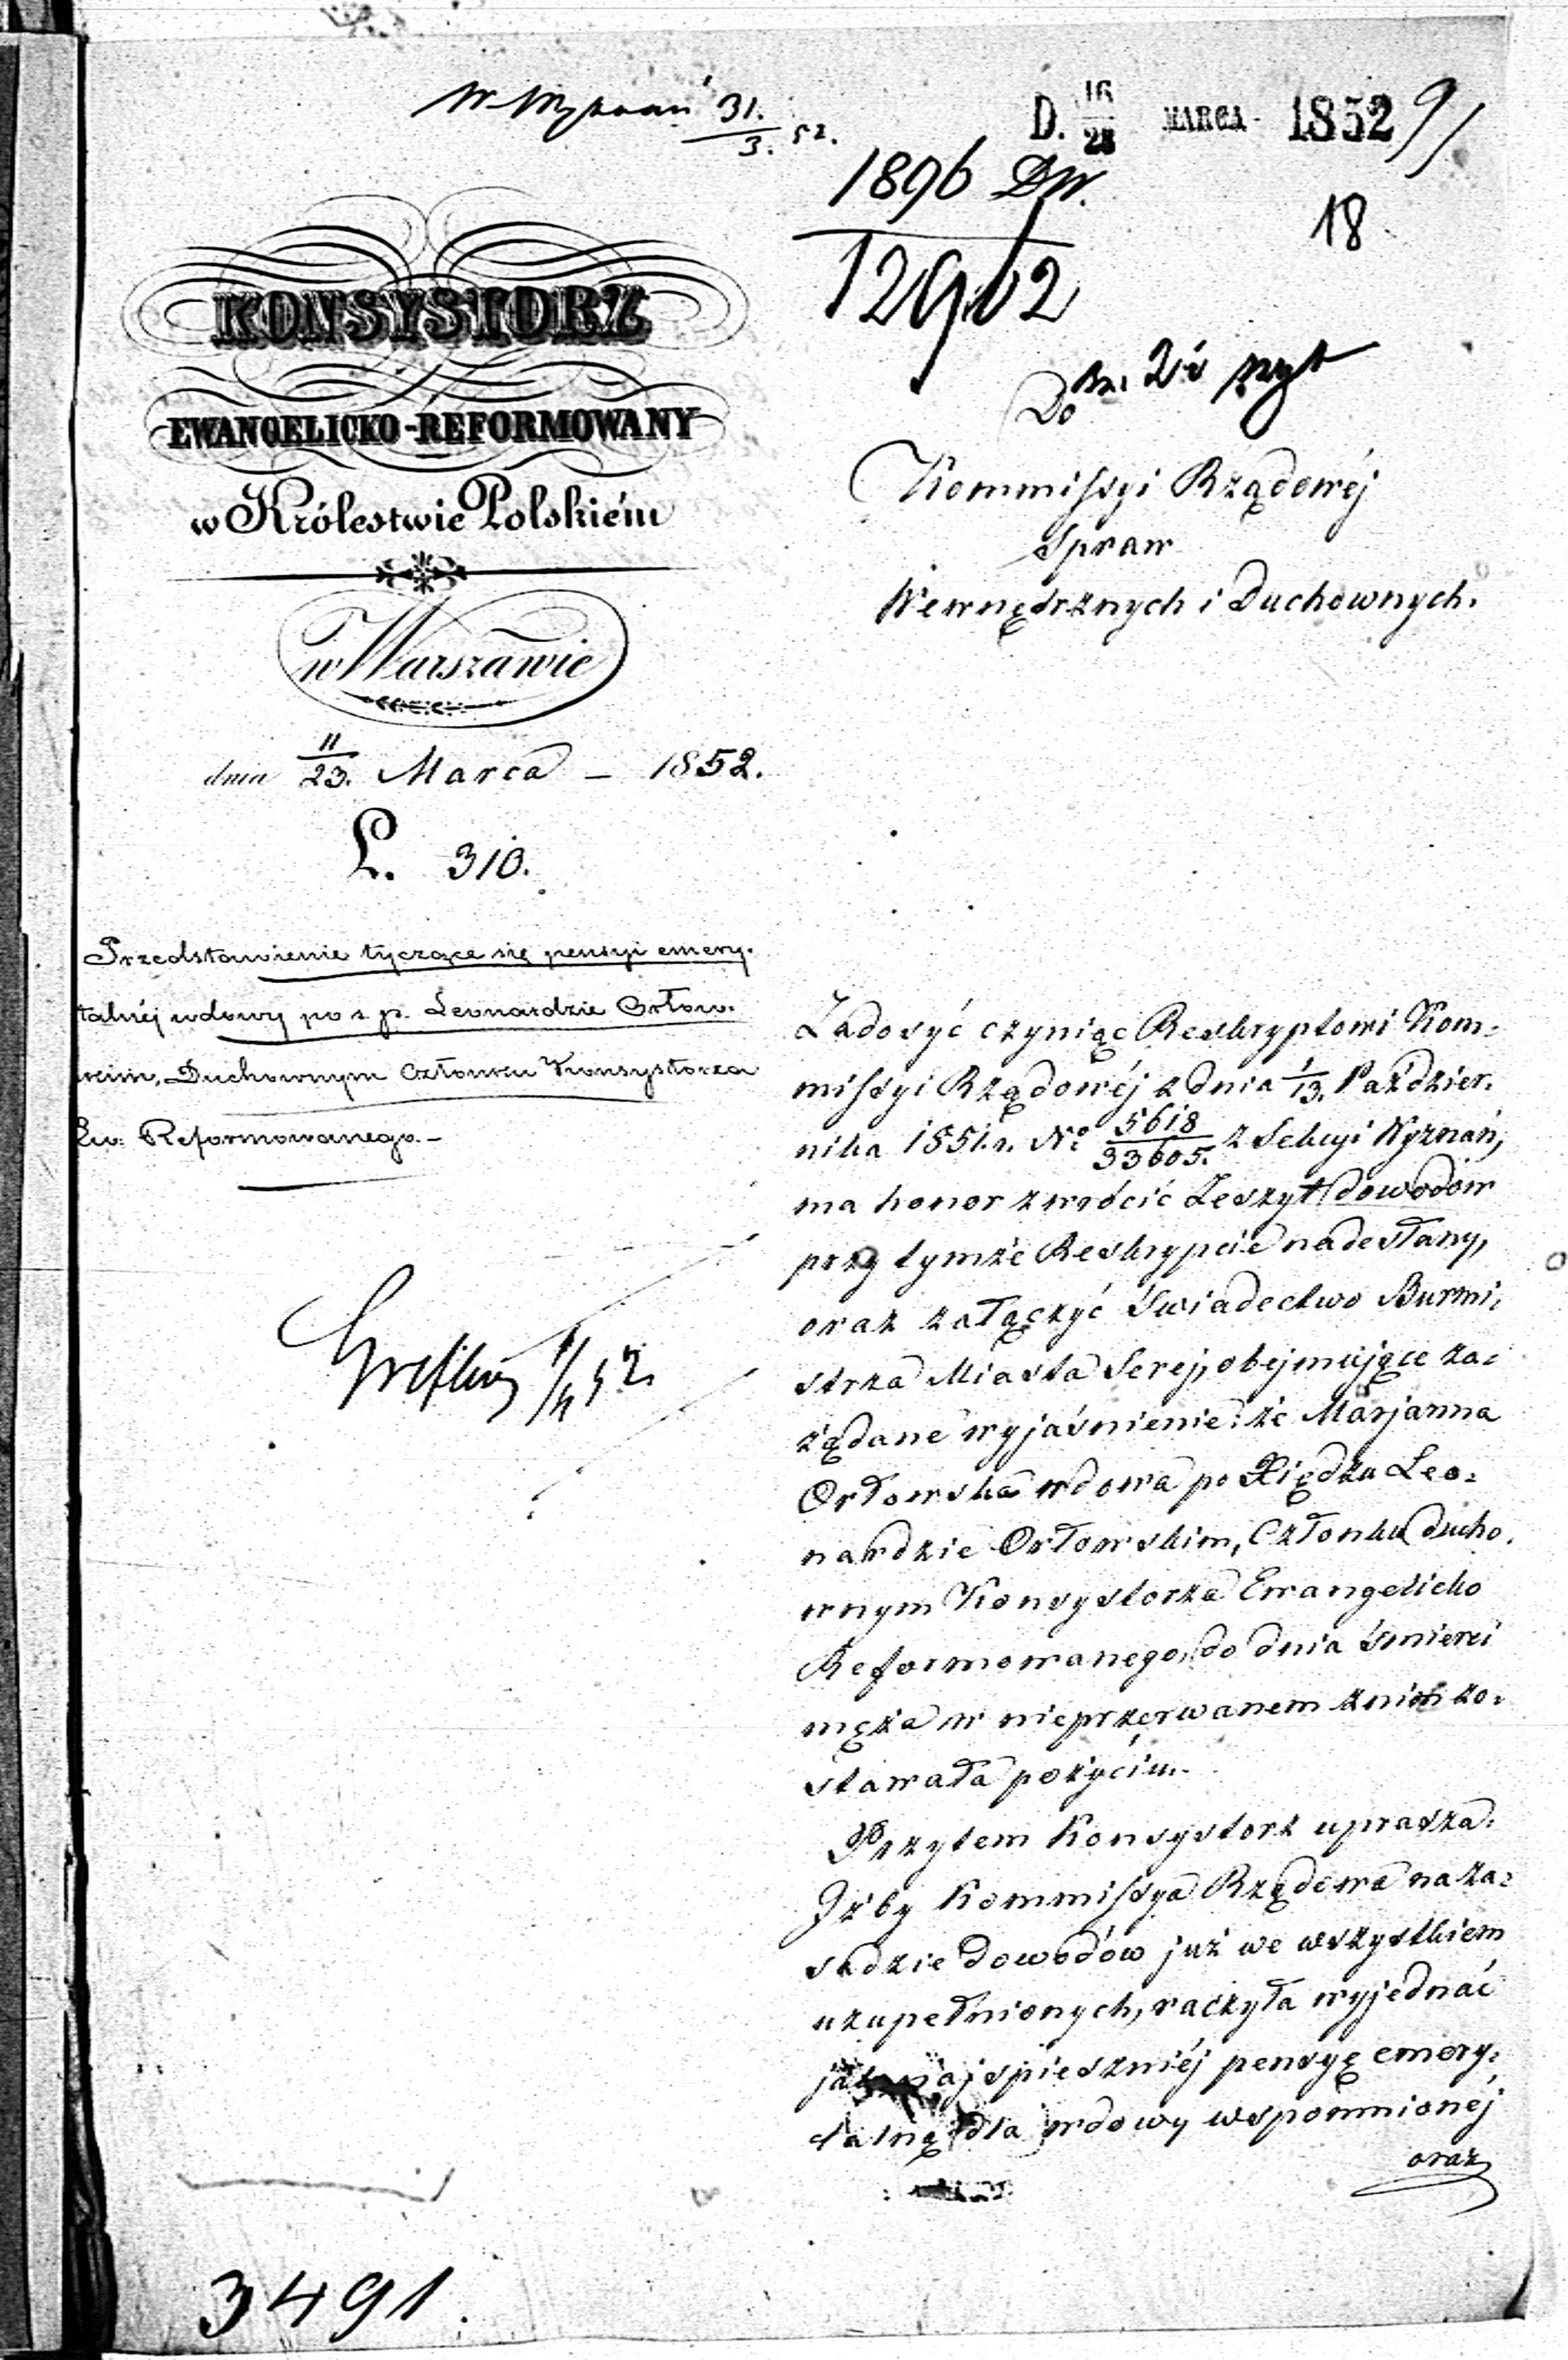 W. Wyznań 31./3. 52.
D. 16/28 MARCA 1852
91
1896 DW.
12902
18
KONSYSTORZ
EWANGELICKO-REFORMOWANY
w Królestwie Polskiém
w Warszawie
dnia 11/23. Marca – 1852.
L. 310.
Przedstawienie tyczące się pensyi emery-
talnéj wdowy po ś. p. Leonardzie Orłow-
skim, Duchownym Członku Konsystorza
Ew: Reformowanego.–
3491.
Do
Kommissyi Rządowéj
Spraw
Wewnętrznych i Duchownych.
Zadosyć czyniąc Reskryptowi Kom-
missyi Rządowéj z dnia 1/13. Paździer-
nika 1851. r. No 5618/33605. z Sekcyi Wyznań,
ma honor zwrócić Zeszyt dowodów
przy tymże Reskrypcie nadesłany,
oraz załączyć Świadectwo Burmi-
strza Miasta Serej, obejmujące za-
żądane wyjaśnienie: że Marjanna
Orłowska wdowa po Xiędzu Leo-
nardzie Orłowskim, Członku ducho-
wnym Konsystorza Ewangelicko
Reformowanego, do dnia śmierci
męża w nieprzerwanem z nim zo-
stawała pożyciu.–
Przytem Konsystorz uprasza:
Iżby Kommissya Rządowa na za-
sadzie dowodów już we wszystkiem
uzupełnionych, raczyła wyjednać
jak najspieszniéj pensyę emery-
talną dla wdowy wspomnionéj
oraz